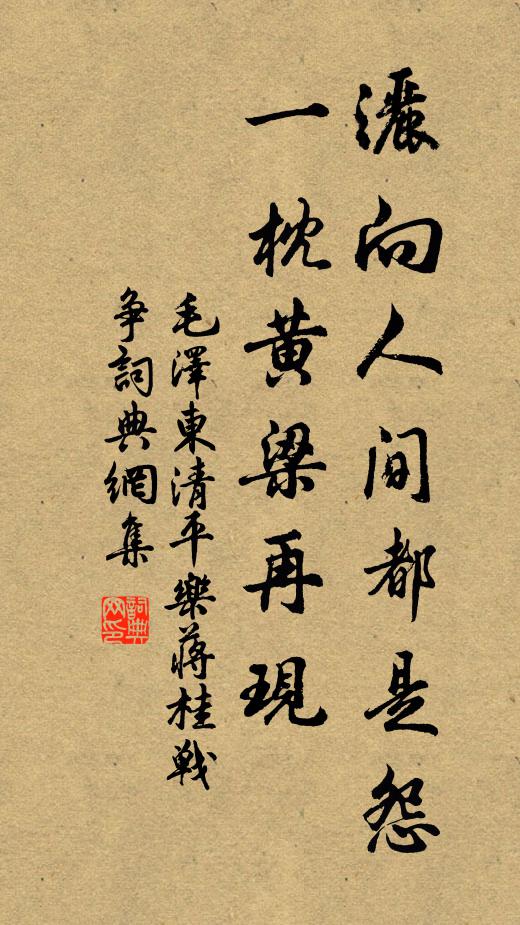 灑向人間都是怨
一枕黄梁再現
毛澤東清平樂蔣桂戦
争詞典網集
詞典
网印